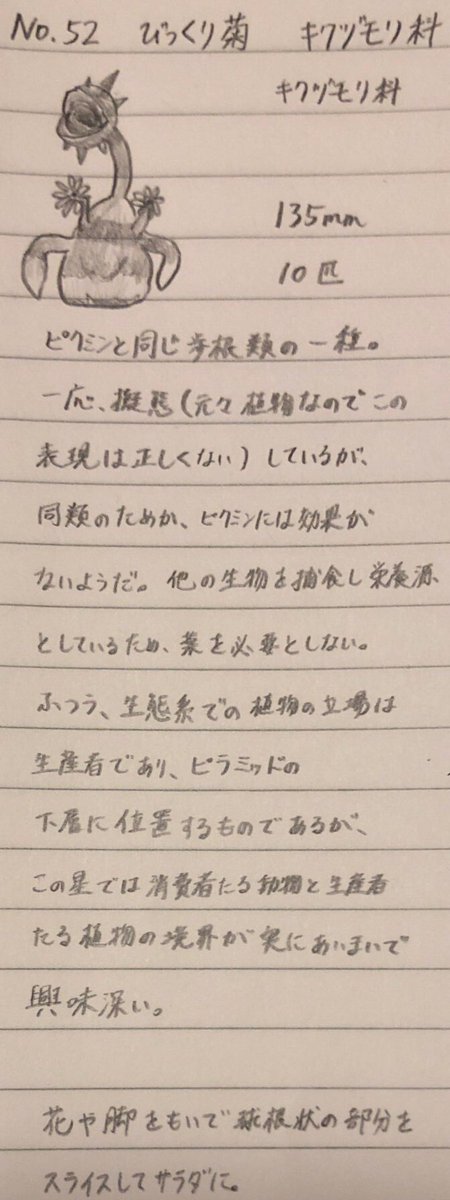 No.52 びっくり菊 キクヅモリ科
キクヅモリ科
135mm
10匹
ピクミンと同じ歩根類の一種。
一応、擬態(元々植物なのでこの
表現は正しくない)しているが、
同類のためか、ピクミンには効果が
ないようだ。他の生物を捕食し栄養源
としているため、葉を必要としない。
ふつう、生態系での植物の立場は
生産者であり、ピラミッドの
下層に位置するものであるが、
この星では消費者たる動物と生産者
たる植物の境界が実にあいまいで
興味深い。
花や脚をもいで球根状の部分を
スライスしてサラダに。